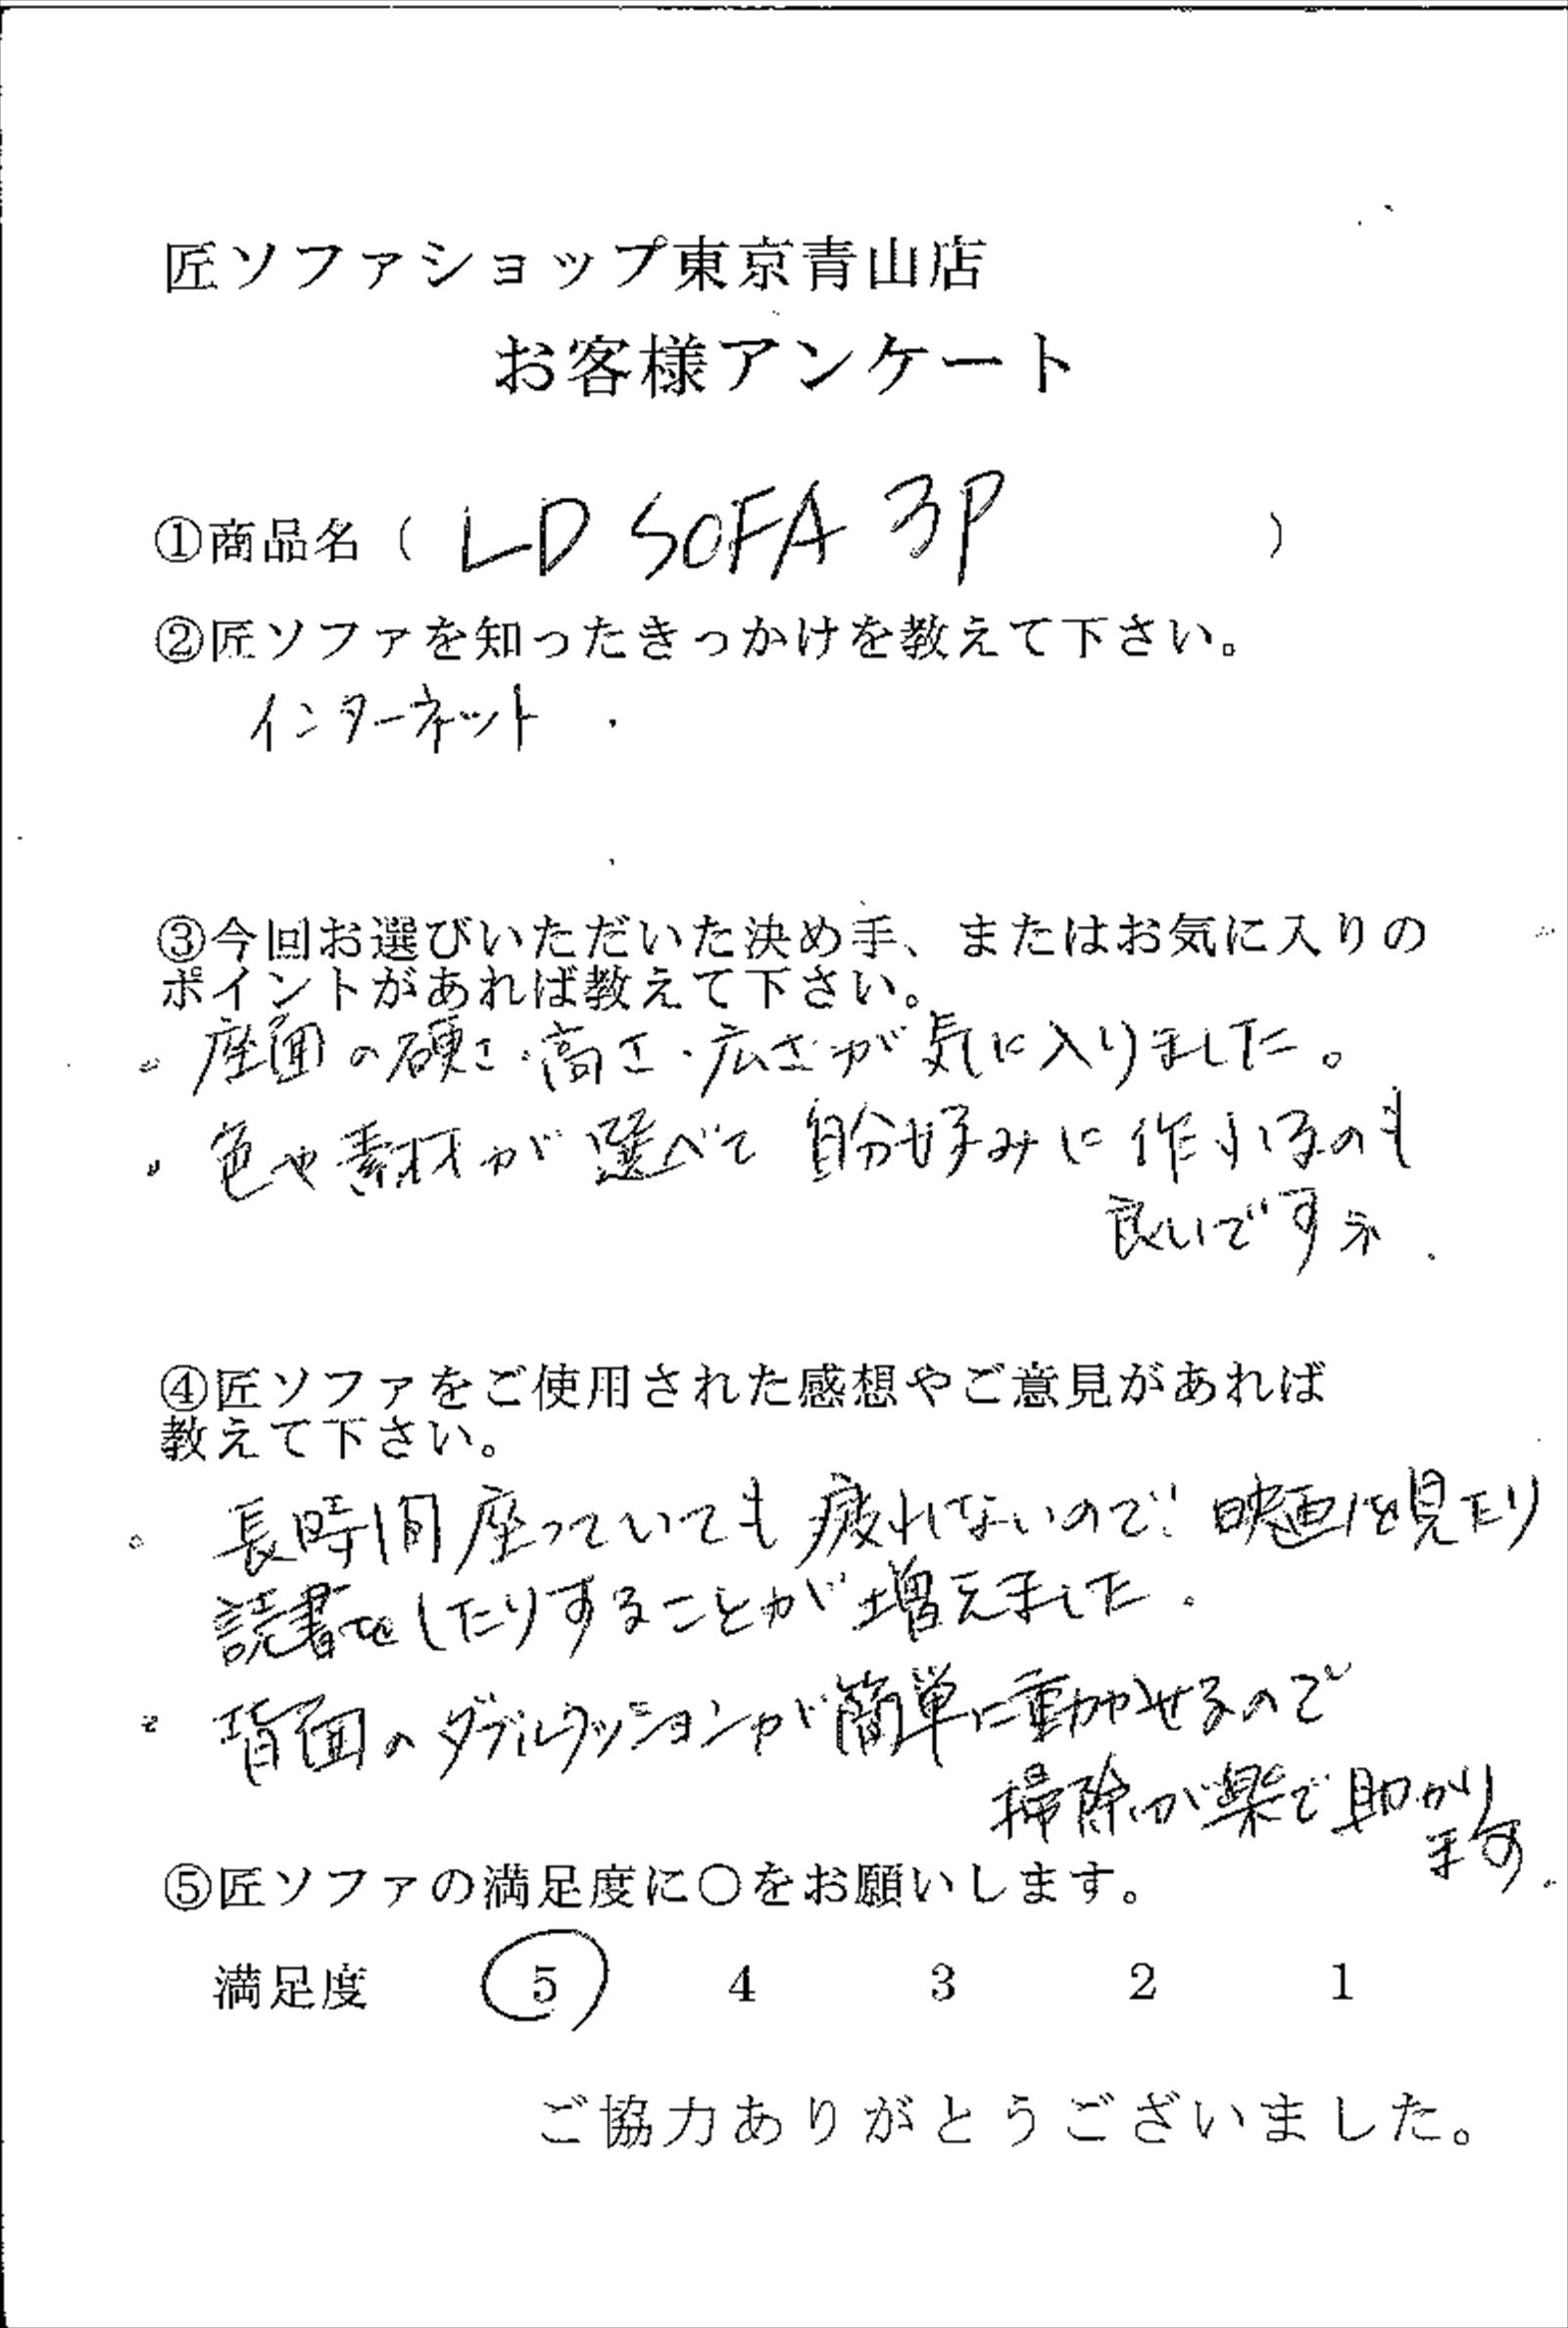 匠ソファショップ東京青山店
お客様アンケート
①商品名（ LD SOFA 3P ）
②匠ソファを知ったきっかけを教えて下さい。
インターネット
③今回お選びいただいた決め手、またはお気に入りの
ポイントがあれば教えて下さい。
・座面の硬さ・高さ・広さが気に入りました。
・色や素材が選べて 自分好みに作れるのも
良いですネ.
④匠ソファをご使用された感想やご意見があれば
教えて下さい。
・長時間座っていても疲れないので 映画を見たり
読書をしたりすることが増えました.
・背面のダブルクッションが簡単に動かせるので
掃除が楽で助かり
ます.
⑤匠ソファの満足度に〇をお願いします。
満足度 5 4 3 2 1
ご協力ありがとうございました。